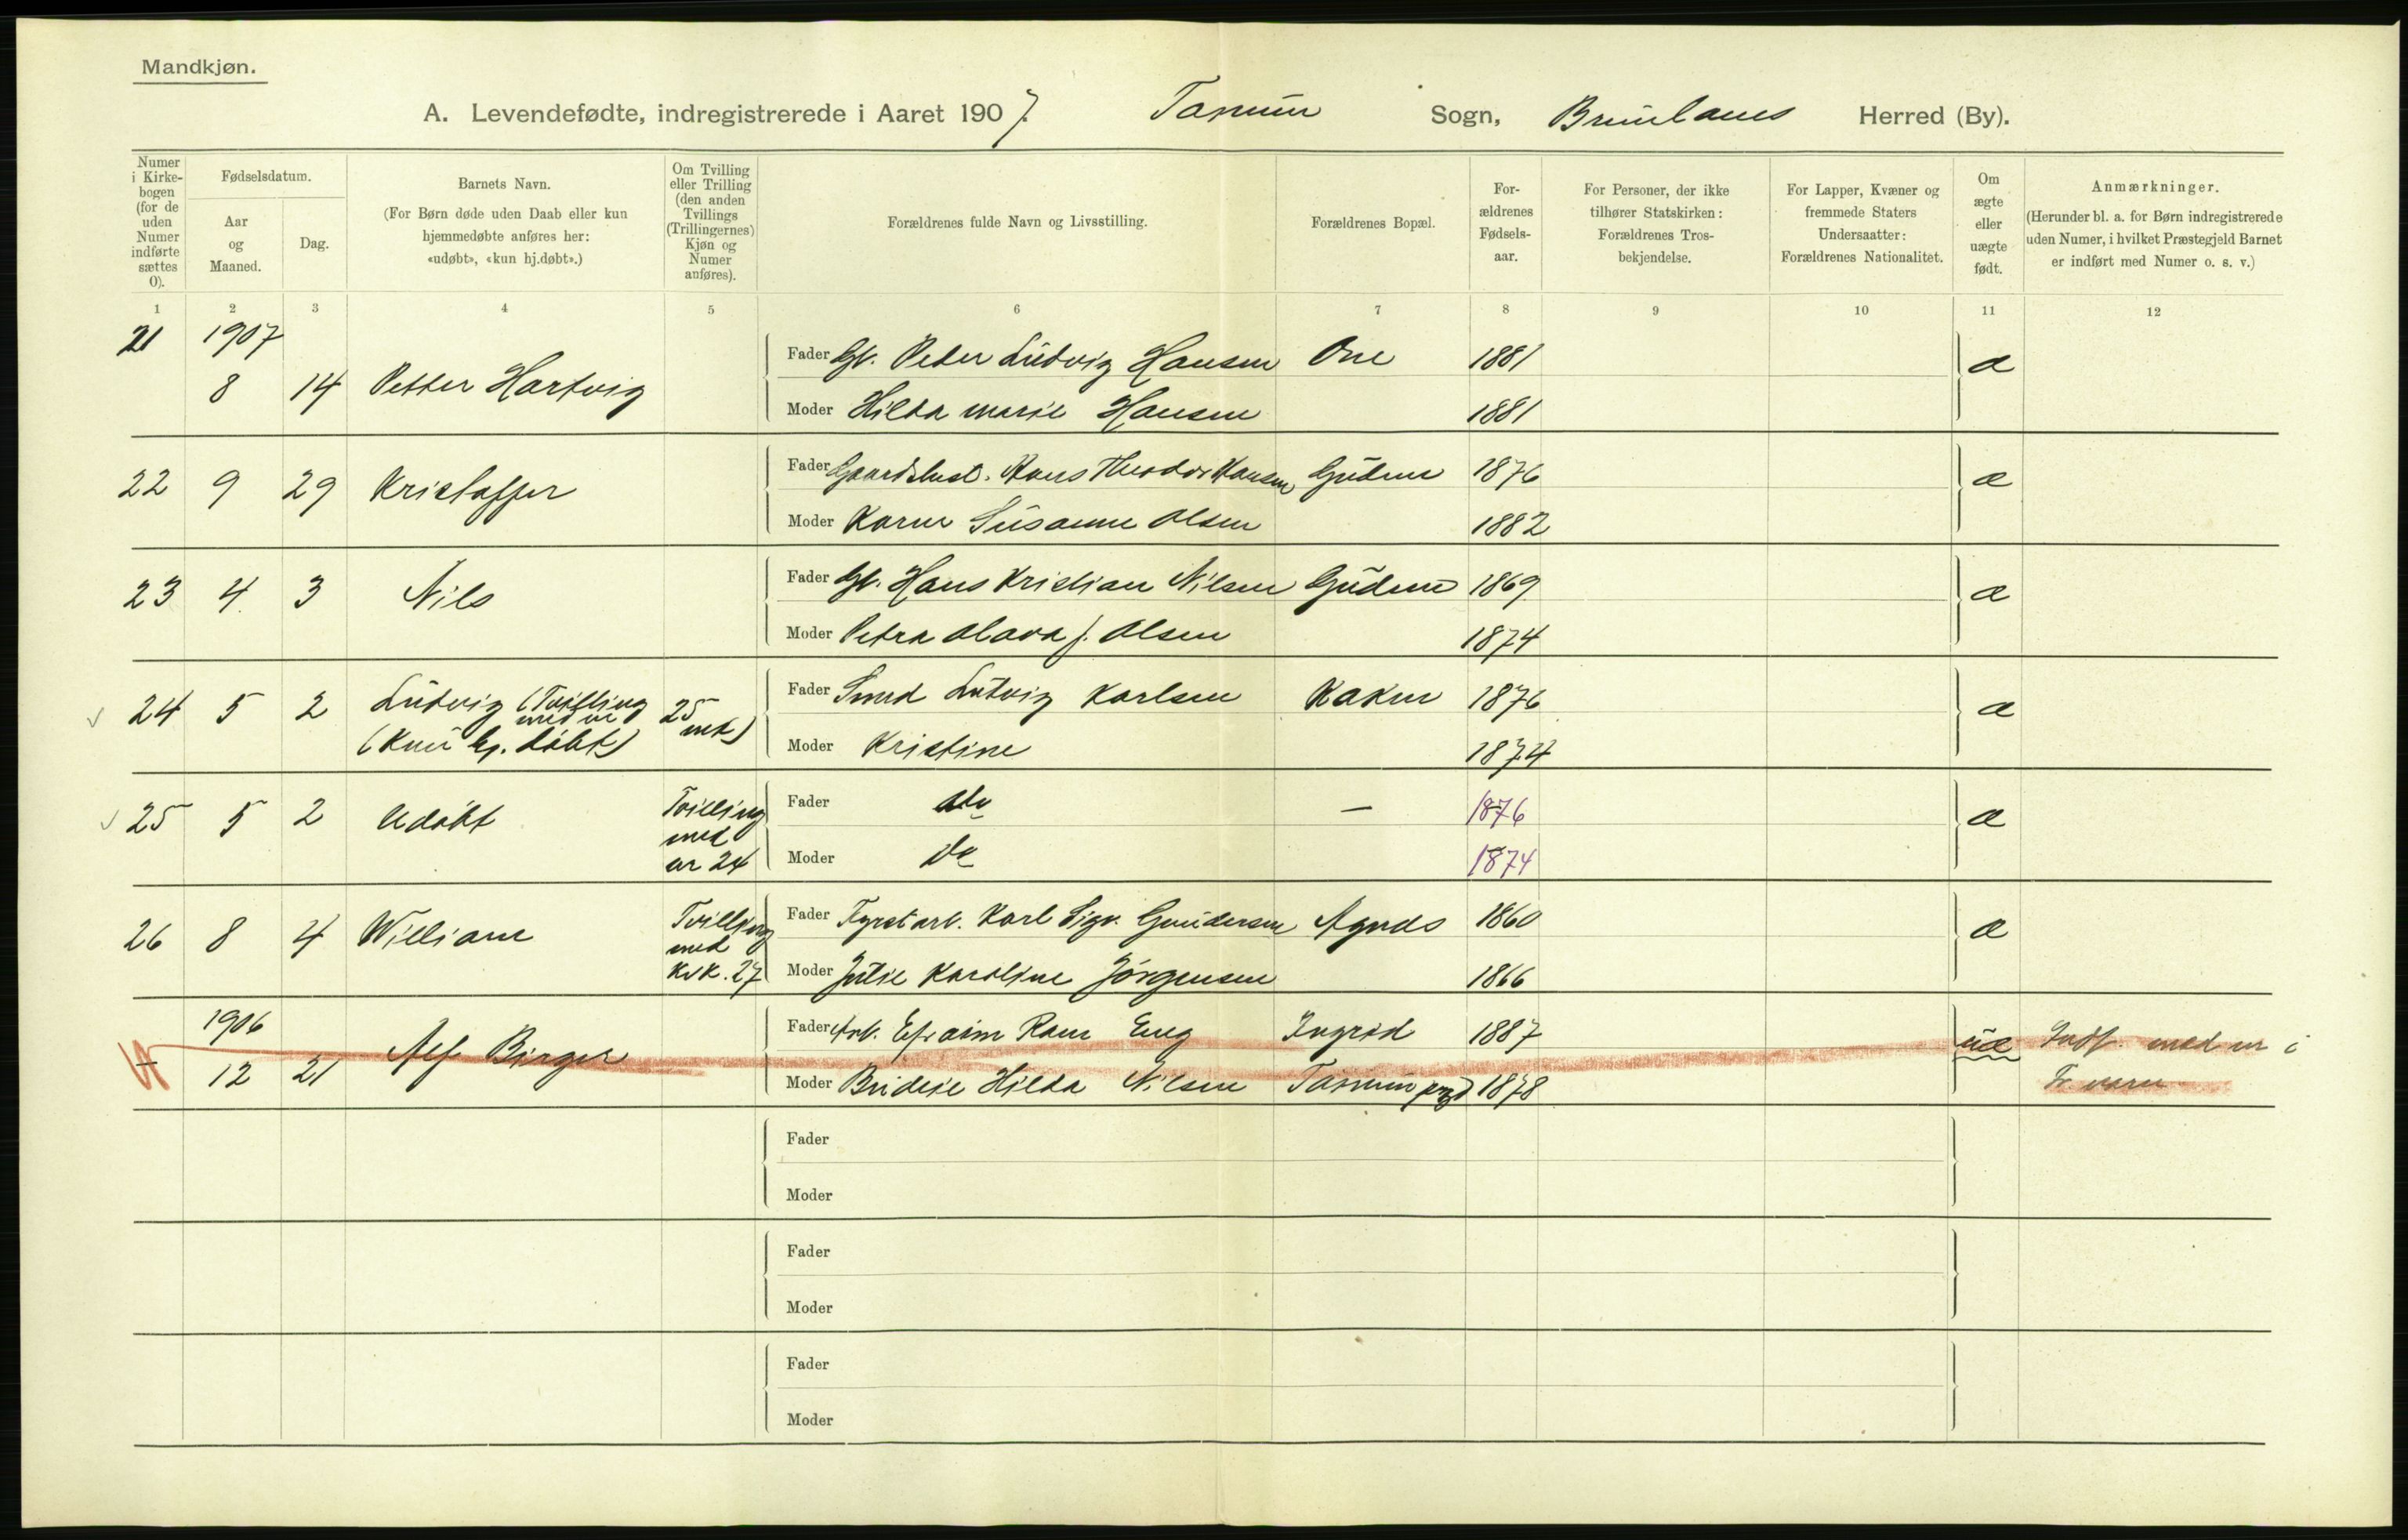 Mandkjøn.
A. Levendefødte, indregistrerede i Aaret 1907. Tanum Sogn, Brunlanes Herred (By).
Numer i Kirkebogen (for de uden Numer indførte sættes 0).
Fødselsdatum.
Aar og Maaned.
Dag.
Barnets Navn.
(For Børn døde uden Daab eller kun hjemmedøbte anføres her: «udøbt», «kun hj.døbt».)
Om Tvilling eller Trilling (den anden Tvillings (Trillingernes) Kjøn og Numer anføres).
Forældrenes fulde Navn og Livsstilling.
Forældrenes Bopæl.
Forældrenes Fødselsaar.
For Personer, der ikke tilhører Statskirken: Forældrenes Trosbekjendelse.
For Lapper, Kvæner og fremmede Staters Undersaatter: Forældrenes Nationalitet.
Om ægte eller uægte født.
Anmærkninger.
(Herunder bl. a. for Børn indregistrerede uden Numer, i hvilket Præstegjeld Barnet er indført med Numer o. s. v.)
1 2 3 4 5 6 7 8 9 10 11 12
21 1907 8 14 Petter Hartvig Fader Gb. Peter Ludvig Hansen One 1881 æ
Moder Hilda Marie Hansen 1881
22 9 29 Kristoffer Fader Gaardbrest. Hans Theodor Hansen Gudem 1876 æ
Moder Karen Susanne Olsen 1882
23 4 3 Nils Fader Gb. Hans Kristian Nilsen Gudem 1869 æ
Moder Petra Olava f. Olsen 1874
24 5 2 Ludvig (Tvilling med nr 25 mk) Fader Smed Ludvig Karlsen Kaken 1876 æ
(Kun hj. døbt) Moder Kristine 1874
25 5 2 Udøbt Tvilling med nr 24 Fader do — 1876 æ
Moder do 1874
26 8 4 William Tvilling med kvk. 27 Fader Karl Sigv. Gundersen Agnes 1860 æ
Moder Julie Karoline Jörgensen 1866
— 1906 12 21 Alf Birger Fader Arb. Efraim Eng 1887 uæ Indf. med nr i
Moder Budeie Hilda Nilsen Tanum prgd 1878 Fr.værn
Fader
Moder
Fader
Moder
Fader
Moder